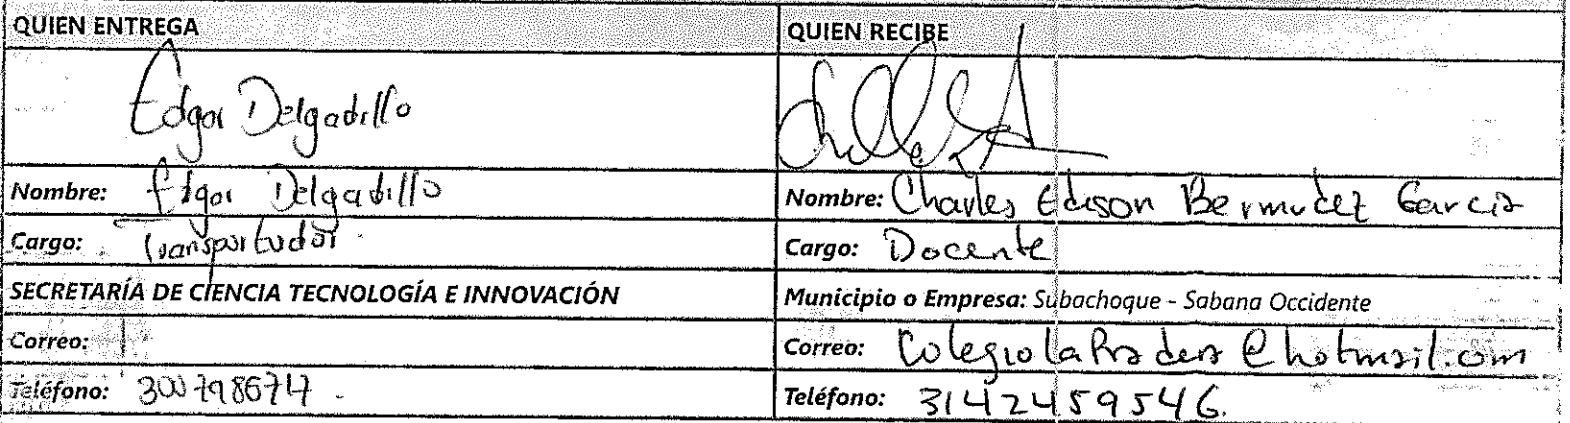 QUIEN ENTREGA
QUIEN RECIBE
Edgar Delgadillo
Nombre: Edgar Delgadillo
Nombre: Charles Edison Bermudez Garcia
Cargo: Transportador
Cargo: Docente
SECRETARÍA DE CIENCIA TECNOLOGÍA E INNOVACIÓN
Municipio o Empresa: Subachoque - Sabana Occidente
Correo:
Correo: ColegiolaPradera@hotmail.com
Teléfono:
Teléfono: 3142459546.